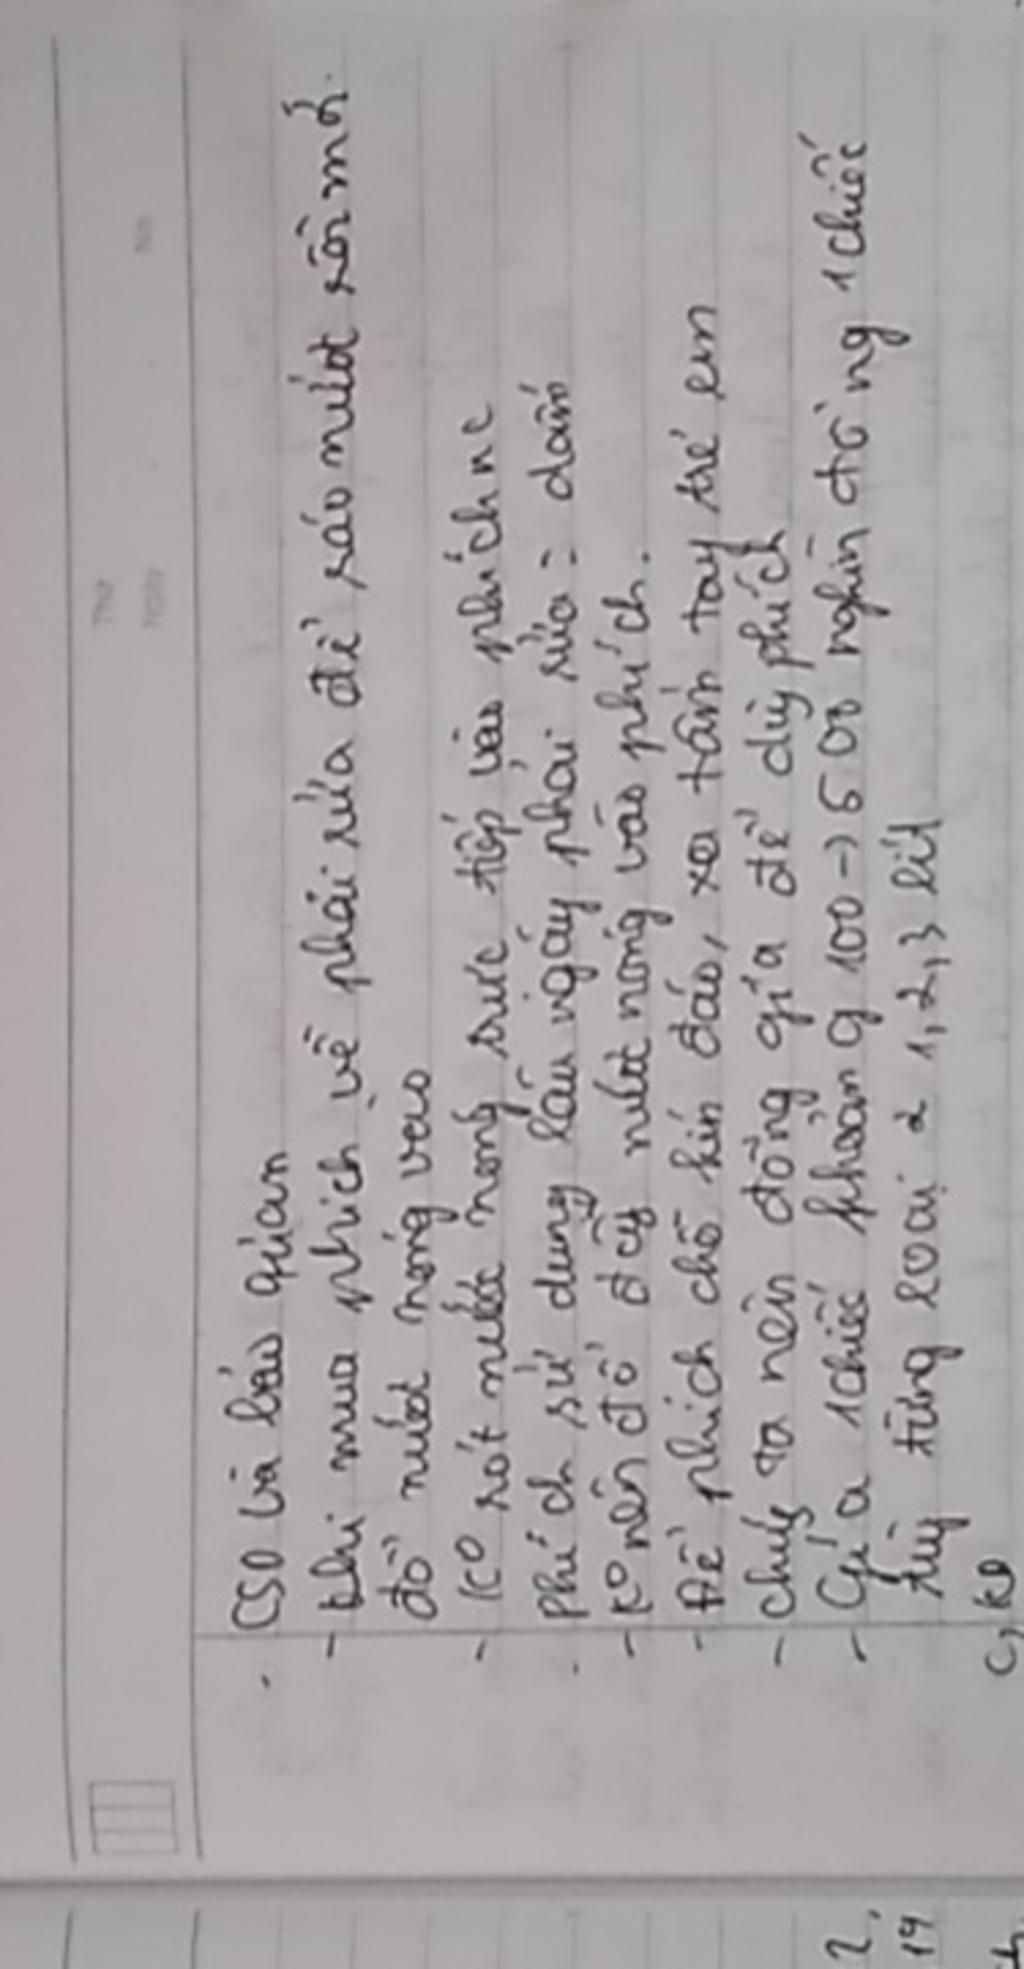 . CSD và bảo qủan
- khi mua phích về phải rửa để ráo nước rồi mới
đổ nước nóng vào
- Ko rót nước nóng trực tiếp vào phích nc
. phích sử dụng lâu ngày phải rửa = dấm
- Ko nên đổ đầy nước nóng vào phích.
- Để phích chỗ kín đáo, xa tầm tay trẻ em
- chúg ta nên đóng gía để dựg phích
- Gía 1 chiếc khoảng 100 -> 500 nghìn đồng 1 chiếc
tùy từng loại 1, 2, 3 lít
C, KB
2,
19